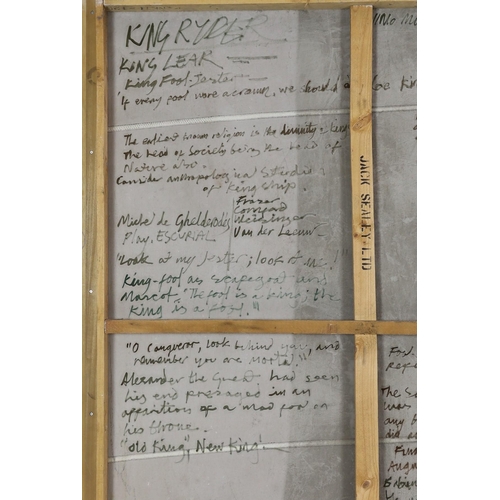 KING RYDER
KING LEAR
King Fool-Jester
"If every fool wore a crown, we should
all be Kin
The earliest known religion is the divinity of King
The head of Society being the head of
Nature also.
Consider anthropological Studies
of Kingship.
Frazer
Michel de Ghelderode
Play. ESCURIAL
Van der Leeuw
"Look at my Jester; look at me!"
King-fool as scapegoat and
Mascot. "The fool is a king; the
King is a fool."
"O Conqueror, look behind you, and
remember you are mortal!"
Alexander the Great had seen
his end presaged in an
apparition of a mad fool on
his throne.
"Old King", New King!
JACK SEALEY LTD
Fool.
repe
The S
was
any
did